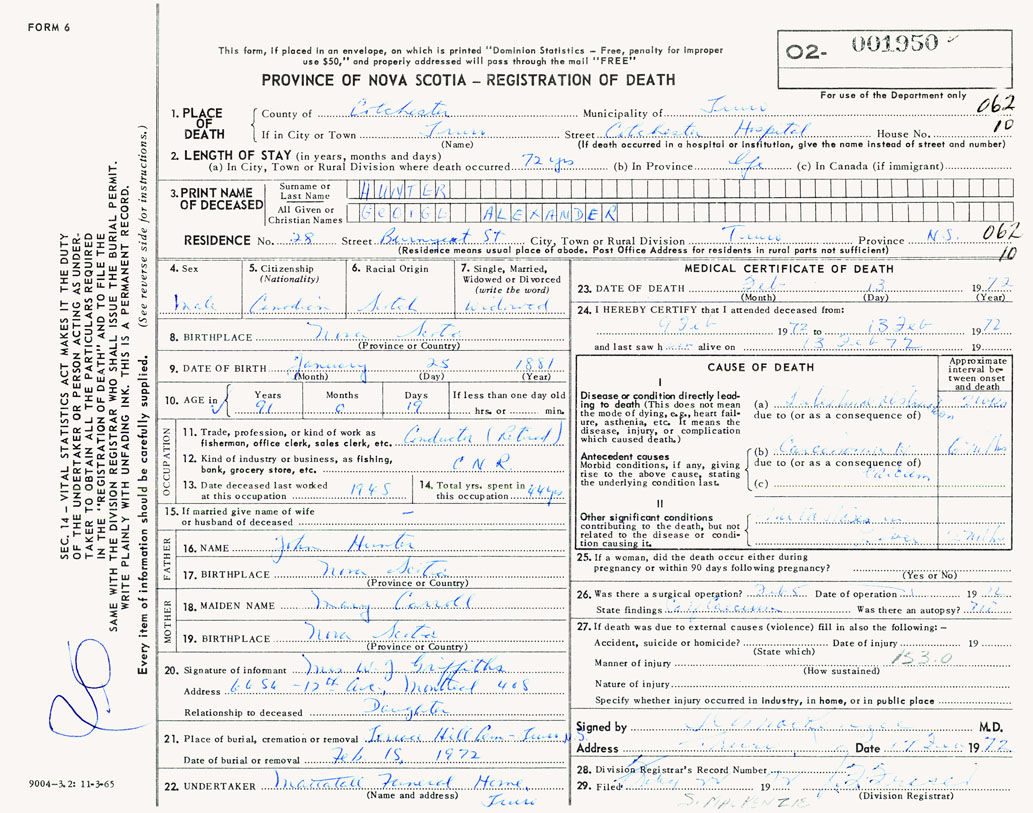 FORM 6
This form, if placed in an envelope, on which is printed "Dominion Statistics – Free, penalty for improper
use $50," and properly addressed will pass through the mail "FREE"
PROVINCE OF NOVA SCOTIA – REGISTRATION OF DEATH
O2- 001950
For use of the Department only
062
10
1. PLACE OF DEATH
County of Colchester Municipality of Truro
If in City or Town Truro Street Colchester Hospital House No.
(Name) (If death occurred in a hospital or institution, give the name instead of street and number)
2. LENGTH OF STAY (in years, months and days)
(a) In City, Town or Rural Division where death occurred 72 yrs (b) In Province life (c) In Canada (if immigrant)
3. PRINT NAME OF DECEASED
Surname or Last Name HUNTER
All Given or Christian Names GEORGE ALEXANDER
RESIDENCE No. 28 Street St City, Town or Rural Division Truro Province N.S.
(Residence means usual place of abode. Post Office Address for residents in rural parts not sufficient)
062
10
4. Sex
Male
5. Citizenship
(Nationality)
Canadian
6. Racial Origin
Scotch
7. Single, Married,
Widowed or Divorced
(write the word)
Widowed
8. BIRTHPLACE Nova Scotia
(Province or Country)
9. DATE OF BIRTH January 25 1881
(Month) (Day) (Year)
10. AGE in
Years Months Days If less than one day old
91 0 19 hrs. or min.
OCCUPATION
11. Trade, profession, or kind of work as
fisherman, office clerk, sales clerk, etc. Conductor (Retired)
12. Kind of industry or business, as fishing,
bank, grocery store, etc. C N R.
13. Date deceased last worked
at this occupation 1945
14. Total yrs. spent in
this occupation 44 yrs
15. If married give name of wife
or husband of deceased –
FATHER
16. NAME John Hunter
17. BIRTHPLACE Nova Scotia
(Province or Country)
MOTHER
18. MAIDEN NAME Mary Carroll
19. BIRTHPLACE Nova Scotia
(Province or Country)
20. Signature of informant Mrs. W. J. Griffiths
Address 6656 – 12th Ave, Montreal 408
Relationship to deceased Daughter
21. Place of burial, cremation or removal Terrace Hill Cem – Truro N.S.
Date of burial or removal Feb 15, 1972
22. UNDERTAKER Mattatall Funeral Home,
(Name and address) Truro
MEDICAL CERTIFICATE OF DEATH
23. DATE OF DEATH Feb 13 1972
(Month) (Day) (Year)
24. I HEREBY CERTIFY that I attended deceased from:
9 Feb 1972 to 13 Feb 1972
and last saw h alive on 13 Feb 72 19
CAUSE OF DEATH
Approximate
interval be-
tween onset
and death
I
Disease or condition directly lead-
ing to death (This does not mean
the mode of dying, e.g., heart fail-
ure, asthenia, etc. It means the
disease, injury, or complication
which caused death.)
(a)
due to (or as a consequence of)
Antecedent causes
Morbid conditions, if any, giving
rise to the above cause, stating
the underlying condition last.
(b) Carcinoma
due to (or as a consequence of)
(c) Caecum
II
Other significant conditions
contributing to the death, but not
related to the disease or condi-
tion causing it.
25. If a woman, did the death occur either during
pregnancy or within 90 days following pregnancy?
(Yes or No)
26. Was there a surgical operation? Date of operation 19
State findings Ca Caecum Was there an autopsy?
27. If death was due to external causes (violence) fill in also the following: –
Accident, suicide or homicide? Date of injury 19
(State which)
Manner of injury 153.0
(How sustained)
Nature of injury
Specify whether injury occurred in industry, in home, or in public place
Signed by M.D.
Address Truro Date 17 Feb 1972
28. Division Registrar's Record Number
29. Filed 19 72
(Division Registrar)
S. MACKENZIE
SEC. 14 – VITAL STATISTICS ACT MAKES IT THE DUTY
OF THE UNDERTAKER OR PERSON ACTING AS UNDER-
TAKER TO OBTAIN ALL THE PARTICULARS REQUIRED
IN THE "REGISTRATION OF DEATH" AND TO FILE THE
SAME WITH THE DIVISION REGISTRAR WHO SHALL ISSUE THE BURIAL PERMIT.
WRITE PLAINLY WITH UNFADING INK. THIS IS A PERMANENT RECORD.
Every item of information should be carefully supplied. (See reverse side for instructions.)
9004–3.2: 11-3-65